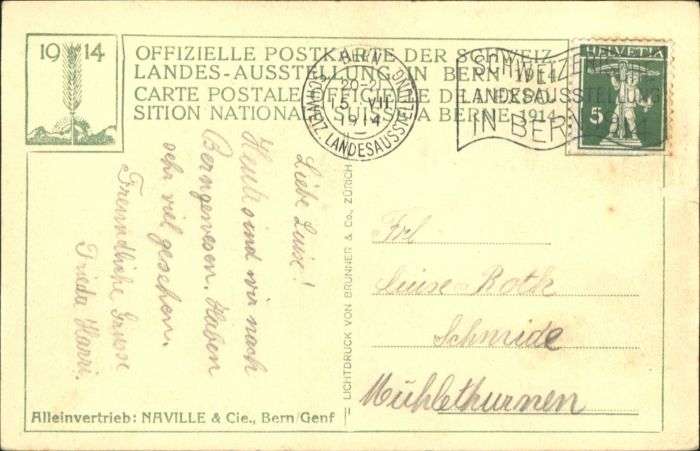 19 14
OFFIZIELLE POSTKARTE DER SCHWEIZ.
LANDES-AUSSTELLUNG IN BERN 1914
CARTE POSTALE OFFICIELLE DE L'EXPO-
SITION NATIONALE SUISSE A BERNE 1914
BERN
20-21
15. VII.
1914
SCHWEIZ. LANDESAUSSTELLUNG
SCHWEIZEN
LANDESAUSSTELLUNG
IN BERN
HELVETIA
5
Liebe Luise!
Heute sind wir nach
Bern gewesen. Haben
sehr viel gesehen.
Freundliche Grüsse
Frieda Harri.
LICHTDRUCK VON BRUNNER & Co., ZÜRICH
Frl
Luise Roth
Schmide
Mühlethurnen
Alleinvertrieb: NAVILLE & Cie., Bern/Genf